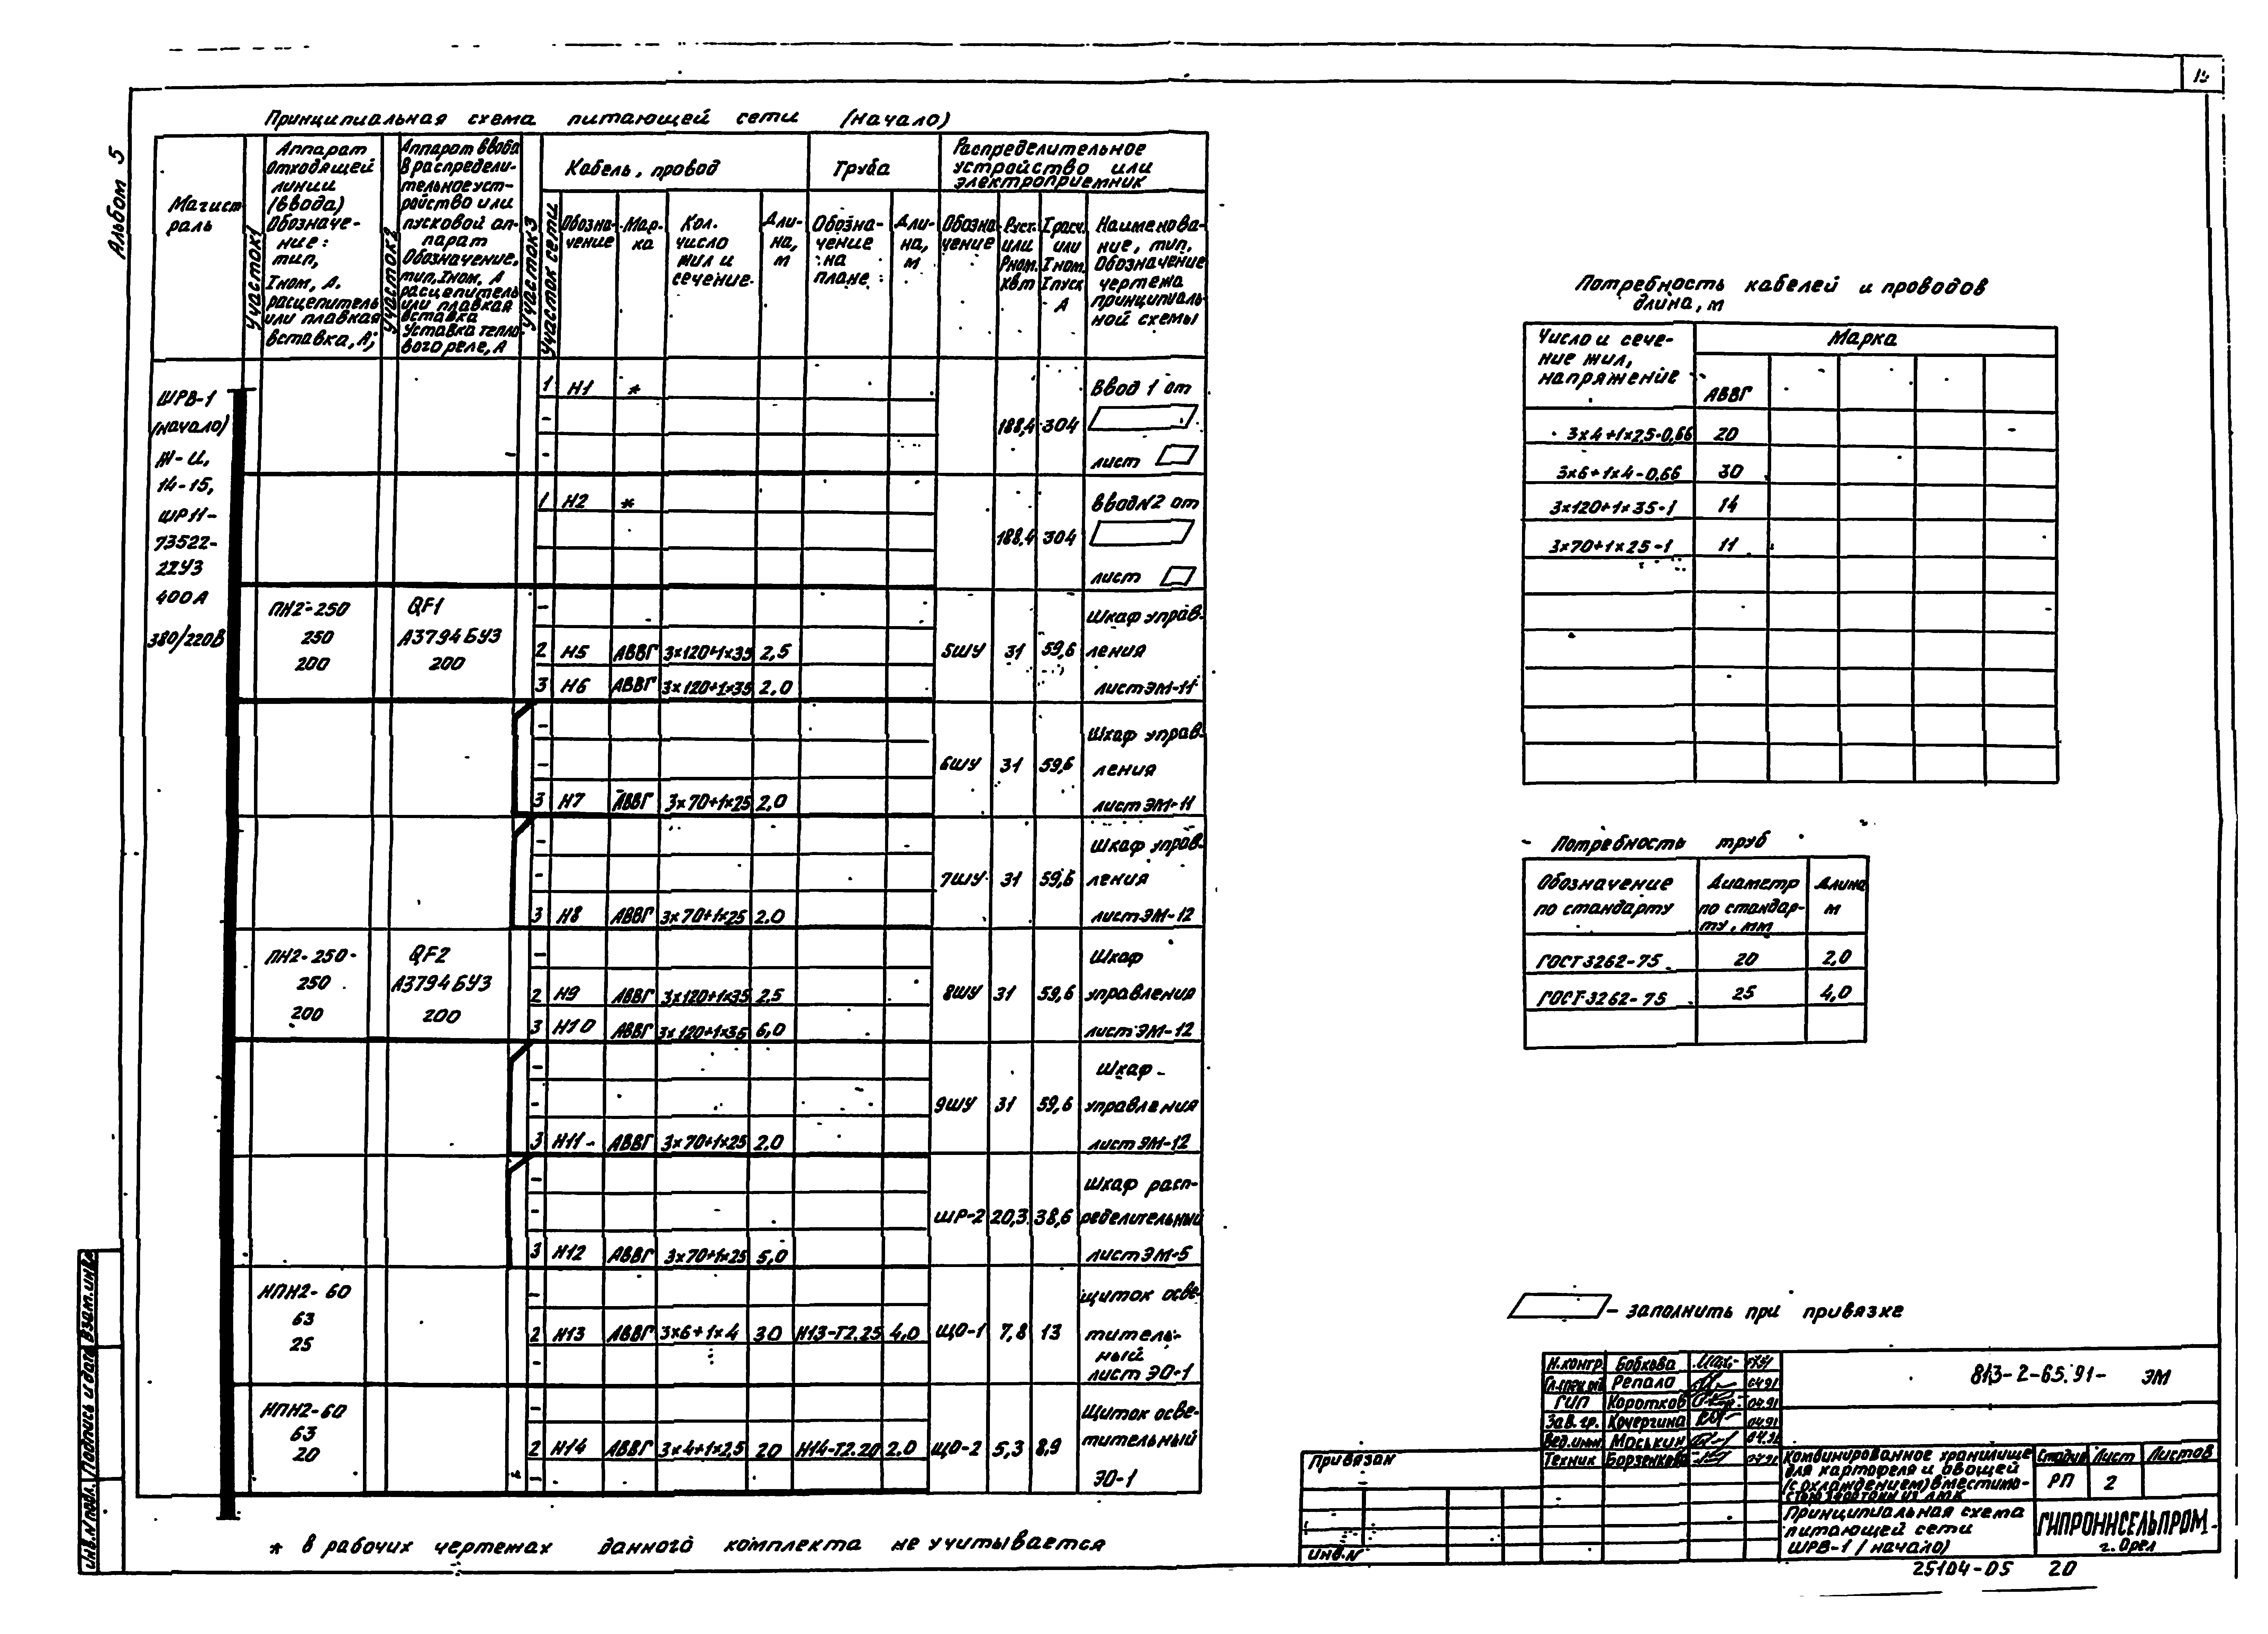 Альбом 5
Принципиальная схема питающей сети (начало)
Магист
раль
Участок 1
Аппарат
отходящей
линии
(ввода)
Обозначе-
ние:
тип,
Iном, А.
расцепитель
или плавкая
вставка, А;
Участок 2
Аппарат ввода
в распредели-
тельное уст-
ройство или
пусковой ап-
парат
Обозначение,
тип, Iном, А
расцепитель
или плавкая
вставка
Уставка тепло-
вого реле, А
Участок 3
Участок сети
Кабель, провод
Обозна-
чение
Мар-
ка
Кол.
число
жил и
сечение
Дли-
на,
м
Труба
Обозна-
чение
на
плане
Дли-
на,
м
Распределительное
устройство или
электроприемник
Обозна-
чение
Руст.
или
Рном.
кВт
Iрасч.
или
Iном.
Iпуск
А
Наименова-
ние, тип,
Обозначение
чертежа
принципиаль-
ной схемы
ШРВ-1
(начало)
Ж-И,
14-15,
ШР11-
73522-
22У3
400А
380/220В
1 Н1 * 188,4 304 Ввод 1 от
-
- лист
1 Н2 * 188,4 304 Ввод N2 от
лист
ПН2-250 QF1 - Шкаф управ-
250 А3794БУ3 2 Н5 АВВГ 3×120+1×35 2,5 5ШУ 31 59,6 ления
200 200 3 Н6 АВВГ 3×120+1×35 2,0 лист ЭМ-11
- Шкаф управ-
- 6ШУ 31 59,6 ления
3 Н7 АВВГ 3×70+1×25 2,0 лист ЭМ-11
- Шкаф управ-
- 7ШУ 31 59,6 ления
3 Н8 АВВГ 3×70+1×25 2.0 лист ЭМ-12
ПН2-250- QF2 - Шкаф
250 А3794БУ3 2 Н9 АВВГ 3×120+1×35 2.5 8ШУ 31 59,6 управления
200 200 3 Н10 АВВГ 3×120+1×35 6,0 лист ЭМ-12
- Шкаф
- 9ШУ 31 59,6 управления
3 Н11 АВВГ 3×70+1×25 2.0 лист ЭМ-12
- Шкаф расп-
- ШР-2 20,3 38,6 ределительный
3 Н12 АВВГ 3×70+1×25 5,0 лист ЭМ-5
НПН2-60 - щиток осве-
63
25 2 Н13 АВВГ 3×6+1×4 30 Н13-Т2.25 4,0 ЩО-1 7,8 13 титель-
- ный
лист ЭО-1
НПН2-60 - Щиток осве-
63
20 2 Н14 АВВГ 3×4+1×2,5 20 Н14-Т2.20 2.0 ЩО-2 5,3 8,9 тительный
- ЭО-1
* в рабочих чертежах данного комплекта не учитывается
Потребность кабелей и проводов
длина, м
Число и сече-
ние жил,
напряжение
Марка
АВВГ
3×4+1×2.5-0,66 20
3×6+1×4-0,66 30
3×120+1×35-1 14
3×70+1×25-1 11
Потребность труб
Обозначение
по стандарту
Диаметр
по стандар-
ту, мм
Длина
м
ГОСТ 3262-75 20 2,0
ГОСТ 3262-75 25 4,0
- заполнить при привязке
Н.контр. Бобкова
Репало 04.91
ГИП Коротков 04.91
Зав. гр. Кочергина 04.91
Вед.инж Моськин 04.91
Техник Борзенкова 04.91
813-2-65.91- ЭМ
Комбинированное хранилище
для картофеля и овощей
(с охлаждением) вместимо-
Стадия Лист Листов
РП 2
Принципиальная схема
питающей сети
ШРВ-1 (начало)
ГИПРОНИСЕЛЬПРОМ
г. Орел
Привязан
Инв.N
Инв.N подл. Подпись и дата Взам.инв.
25104-05 20